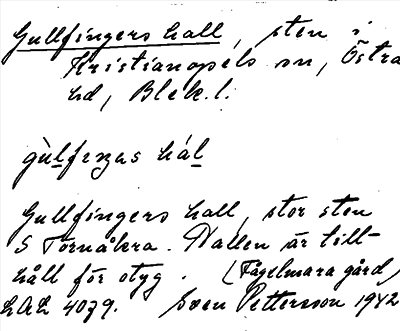 Gullfingers hall, sten i
Kristianopels sn, Östra
hd, Blek.l.
gùlfeŋas hál
Gullfingers hall, stor sten
S Tornåkra. Hallen är till-
håll för otyg. (Fågelmara gård)
LAL 4079. Sven Pettersson 1942